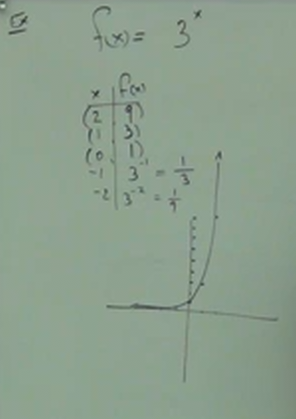 Ex
f(x) = 3^x
x | f(x)
(2 | 9)
(1 | 3)
(0 | 1)
-1 | 3^-1 = 1/3
-2 | 3^-2 = 1/9